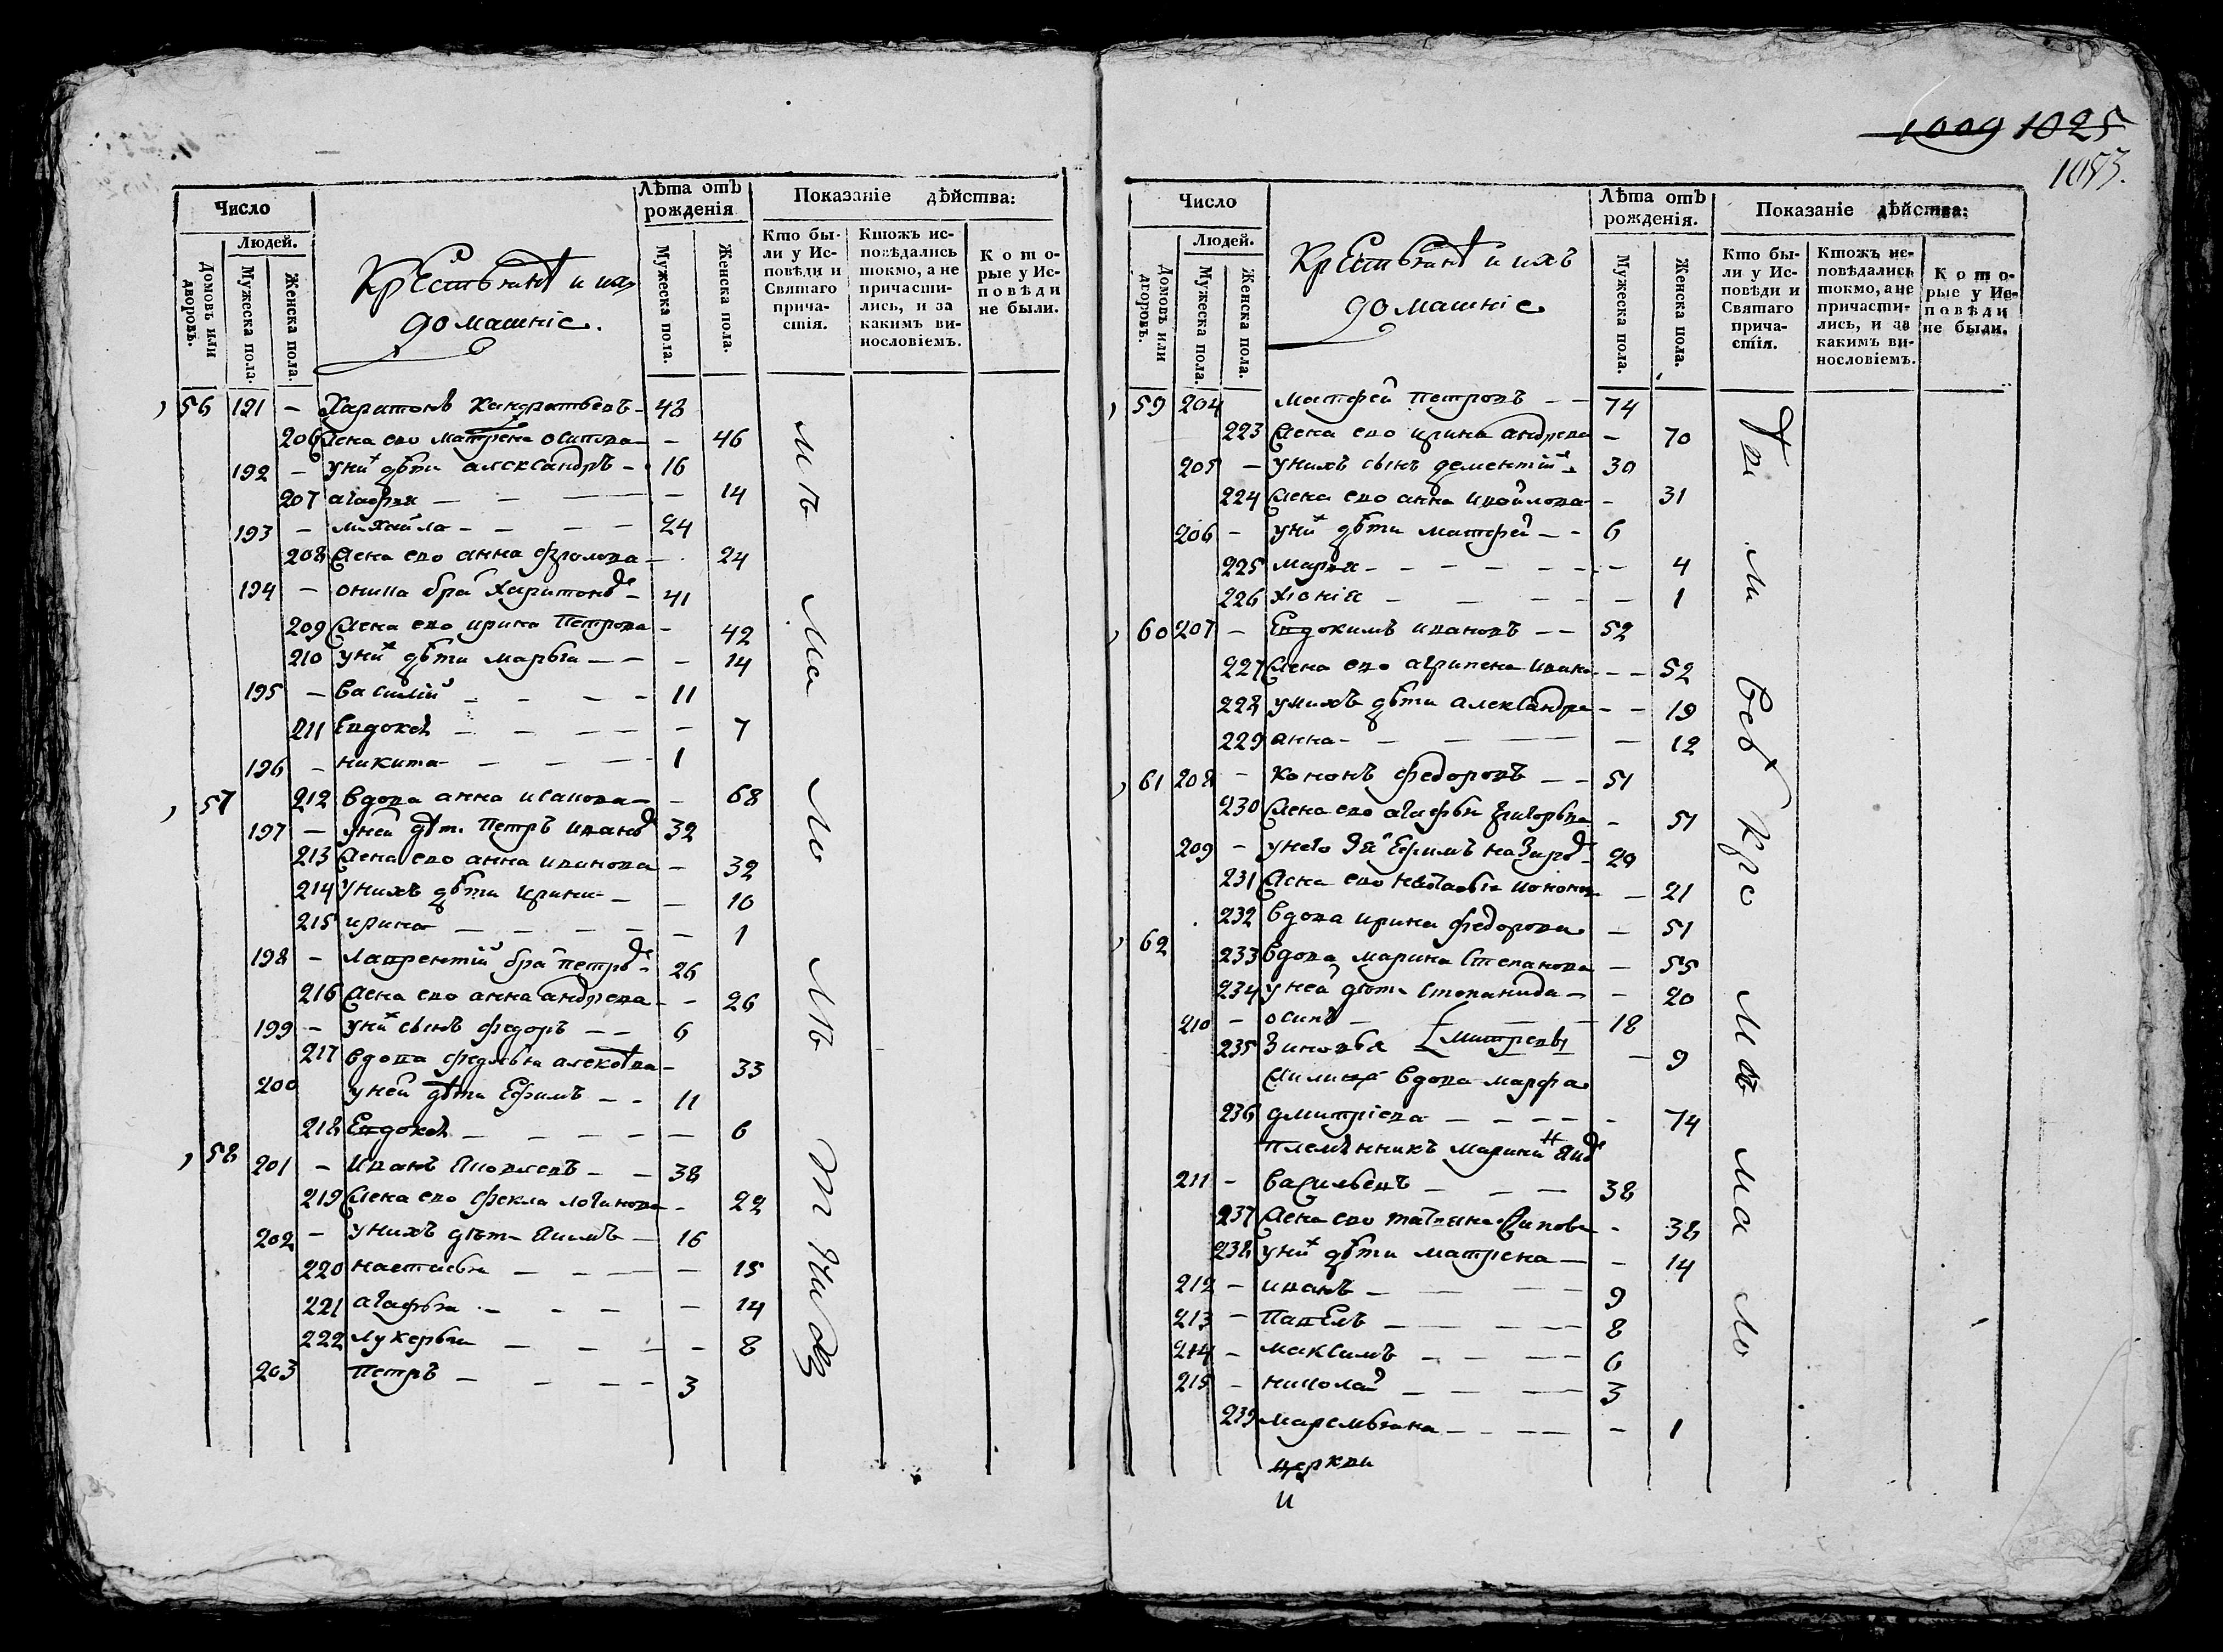 1009 1025
1053.
Число
Людей.
Домовъ или дворовъ.
Мужеска пола.
Женска пола.
Крестьянѣ и их
домашніе.
Лѣта отъ рожденія
Мужеска пола.
Женска пола.
Показаніе дѣйства:
Кто бы-
ли у Ис-
повѣди и
Святаго
прича-
стія.
Ктожъ ис-
повѣдались
токмо, а не
причасти-
лись, и за
какимъ ви-
нословіемъ.
Кото-
рые у Ис-
повѣди
не были.
56 191 – Харитонъ Кондратьевъ – 43
206 Жена ево матрена осипова – – 46
192 – У них дѣти александръ – 16
207 агафья – – – – 14
193 – михаила – – – – 24
208 Жена ево анна фролова – 24
194 – оника бра харитоновъ – 41
209 Жена ево ирина Петрова – 42
210 У них дѣти марья – – – 14
195 – василій – – – – 11
211 Евдокея – – – – – 7
196 – никита – – – – 1
57 212 вдова анна исакова – – 68
197 – у ней дѣти Петръ иванов 32
213 Жена ево анна иванова – 32
214 У нихъ дѣти ирина – – 10
215 ирина – – – – – 1
198 – Лаврентій бра петров – 26
216 Жена ево анна андреева – – 26
199 – У них сынъ федоръ – – 6
217 вдова федосья алексѣева – 33
200 у ней дѣти Ефимъ – – 11
218 Евдокея – – – – – 6
58 201 – Иванъ Яковлевъ – – 38
219 Жена ево фекла логинова – 22
202 – У нихъ дѣти Якимъ – 16
220 настасья – – – – 15
221 агафья – – – – 14
222 лукерья – – – – – 8
203 Петръ – – – – 3
Число
Людей.
Домовъ или дворовъ.
Мужеска пола.
Женска пола.
Крестьянѣ и ихъ
домашніе
Лѣта отъ рожденія.
Мужеска пола.
Женска пола.
Показаніе дѣйства:
Кто бы-
ли у Ис-
повѣди и
Святаго
прича-
стія.
Ктожъ ис-
повѣдались
токмо, а не
причасти-
лись, и за
какимъ ви-
нословіемъ.
Кото-
рые у Ис-
повѣди
не были.
59 204 матфей Петровъ – – 74
223 Жена ево ирина андреева – 70
205 – У нихъ сынъ дементій – 30
224 Жена ево анна – 31
206 – У них дѣти матфей – – 6
225 марья – – – – – – – 4
226 хіонія – – – – – 1
60 207 – Евдокимъ ивановъ – – 52
227 Жена ево агрипена ивано – – – 52
228 У нихъ дѣти александра – – 19
229 анна – – – – – 12
61 208 – Кононъ федоровъ – – 51
230 Жена ево агафья григорьва – 51
209 – У него зя Ефимъ назаров – 20
231 Жена ево настасья кононо – 21
232 вдова ирина федорова – 51
62 233 вдова марина Степанова – 55
234 у ней дѣти Степанида – – 20
210 – осипъ – – – 18
235 Зиновья Дмитревы – 9
вдова марфа
236 дмитріева – – – – – 74
племянникъ марины
211 – васильевъ – – – 38
237 Жена ево татьяна – 38
238 У них дѣти матрена – – 14
212 – иванъ – – – – 9
213 – Павелъ – – – – 8
214 – максимъ – – – – 6
215 – николай – – – – 3
239 маремьяна – – – – – 1
церкви
и